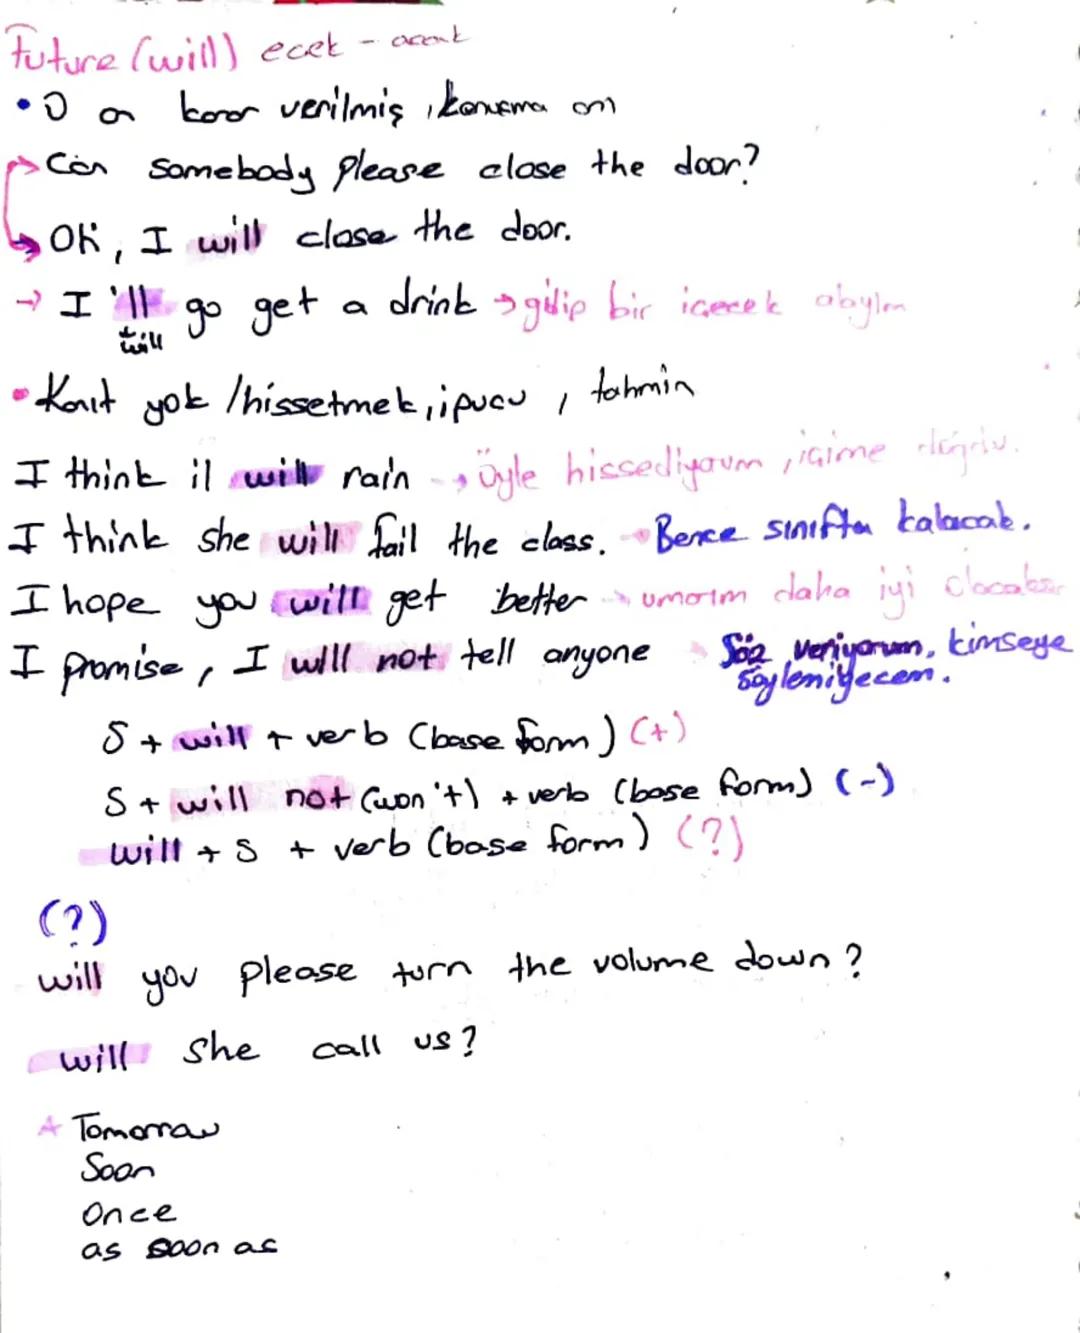 Future (will) ecek - acak
• O an karar verilmiş, konuşma anı
→ Can somebody please close the door?
→ Ok, I will close the door.
→ I'll go get a drink → gidip bir içecek alayım
will
• Kanıt yok / hissetmek, ipucu, tahmin
I think il will rain → Öyle hissediyorum, içime doğdu.
I think she will fail the class. → Bence sınıfta kalacak.
I hope you will get better → umarım daha iyi olacaksın
I promise, I will not tell anyone → Söz veriyorum, kimseye
söylemiyecem.
S + will + verb (base form) (+)
S + will not (won't) + verb (base form) (-)
will + S + verb (base form) (?)
(?)
will you please turn the volume down?
will she call us?
Tomorrow
Soon
Once
as soon as